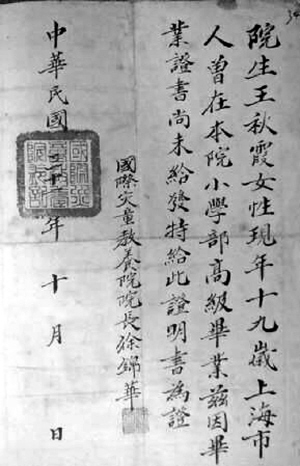 院生王秋霞女性現年十九歲上海市
人曾在本院小學部高級畢業茲因畢
業證書尚未給發特給此證明書為證
國際災童教養院院長徐錦華
中華民國 年十月 日